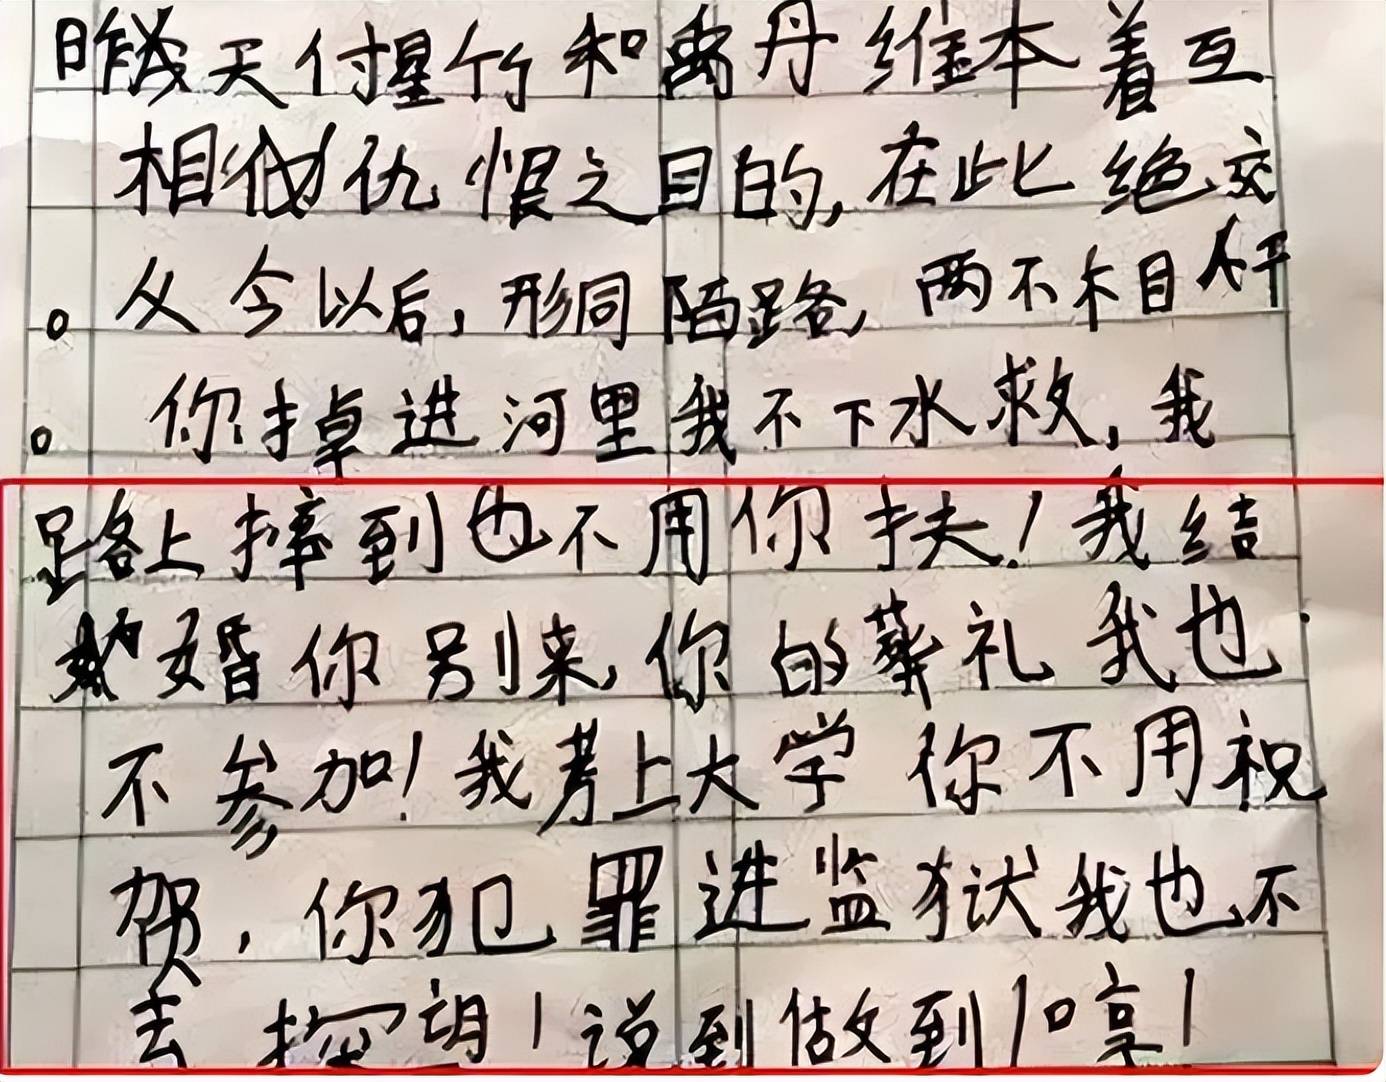 昨天付星竹和禹丹维本着互
相仇恨之目的,在此绝交
。从今以后,形同陌路,两不相干
。你掉进河里我不下水救,我
路上摔到也不用你扶!我结
婚你别来,你的葬礼我也
不参加!我考上大学你不用祝
贺,你犯罪进监狱我也不
去探望!说到做到!哼!